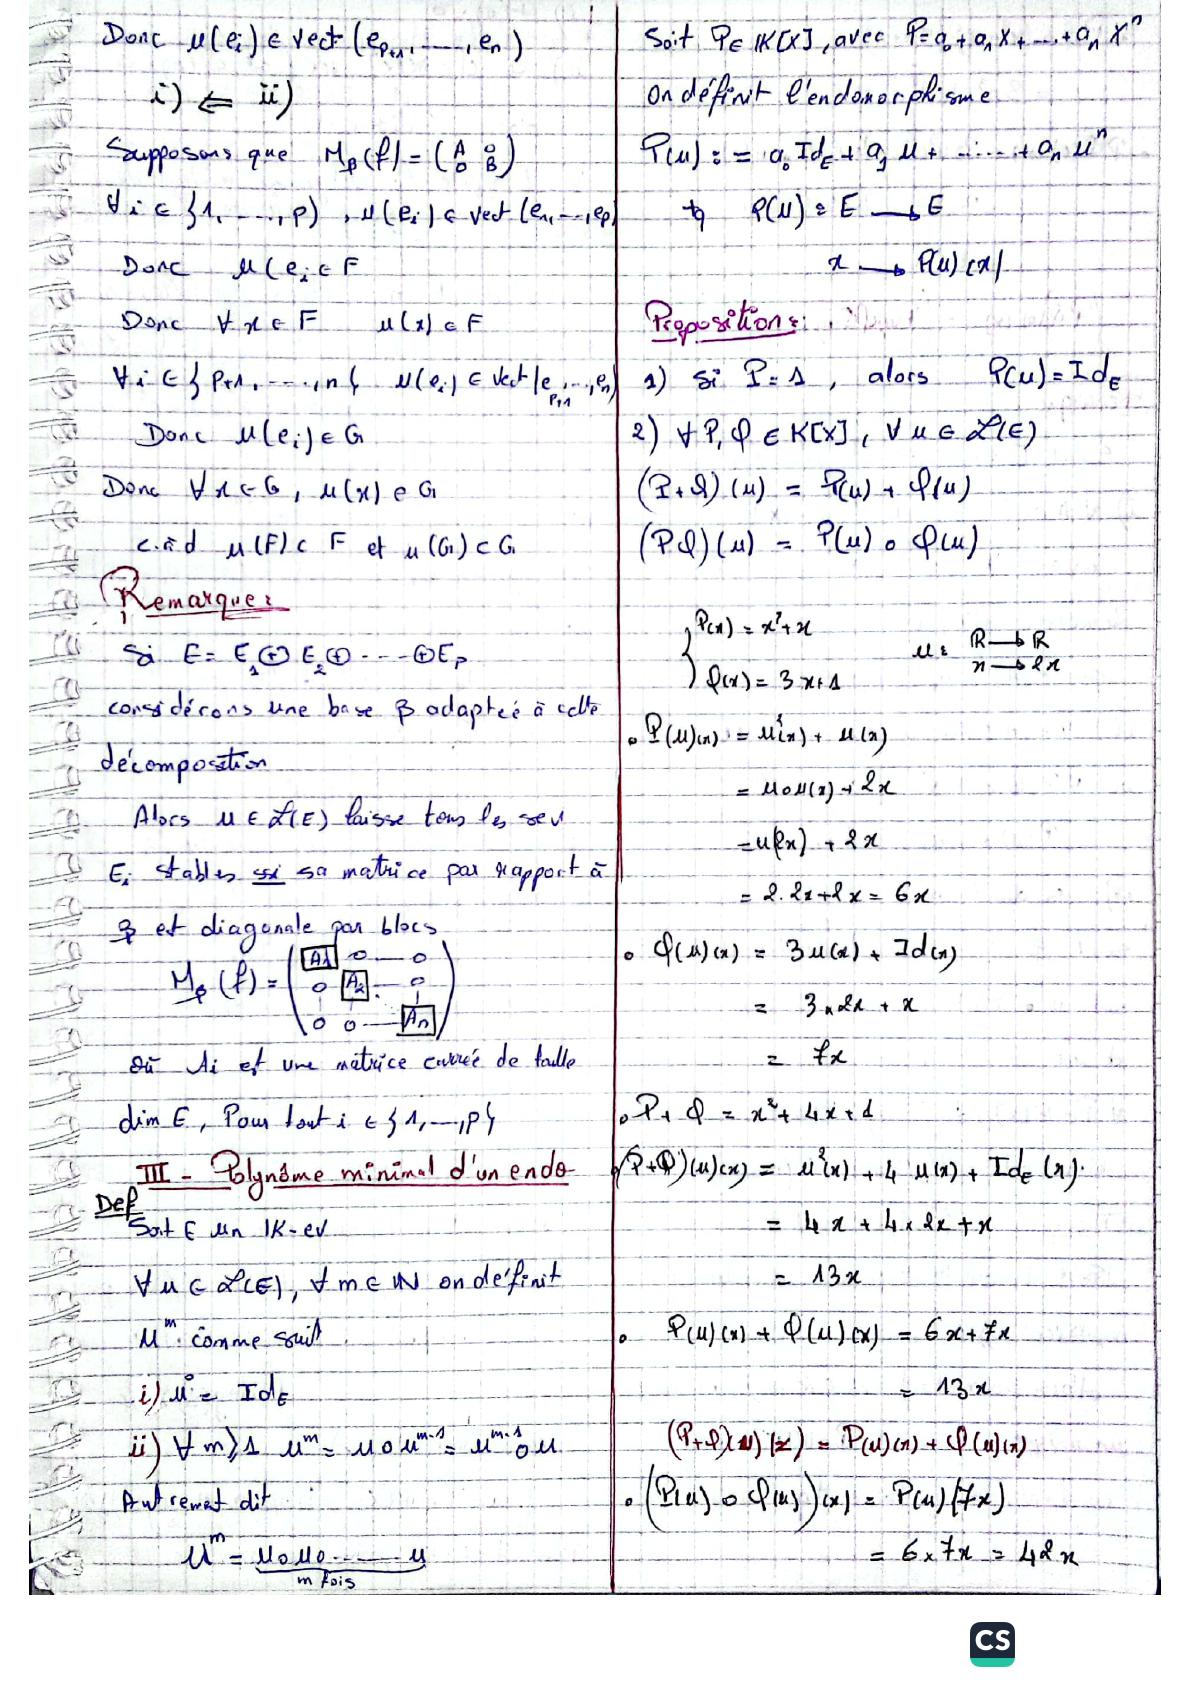 Donc u(ei) ∈ vect(e_{p+1}, ...., en)
i) ⇐ ii)
Supposons que M_β(f) = (A 0 / 0 B)
∀i ∈ {1, ...., p), u(ei) ∈ vect(e1, .., ep)
Donc u(ei ∈ F
Donc ∀x ∈ F u(x) ∈ F
∀i ∈ { p+1, ...., n{ u(ei) ∈ vect(e_{p+1}, .., en)
Donc u(ei) ∈ G
Donc ∀x ∈ G, u(x) ∈ G
c.à d u(F) ⊂ F et u(G) ⊂ G
Remarque:
Si E = E1 ⊕ E2 ⊕ .... ⊕ Ep
considérons une base β adaptée à cette
décomposition
Alors u ∈ L(E) laisse tous les sev
Ei stables ssi sa matrice par rapport à
β et diagonale par blocs
M_β(f) = (A1 0 — 0
0 A2 — 0
0 0 — An)
Où Ai et une matrice carrée de taille
dim E, Pour tout i ∈ {1, —, p}
III - Polynôme minimal d'un endo
Def
Soit E un IK-ev
∀u ∈ L(E), ∀m ∈ IN on définit
u^m comme suit
i) u° = Id_E
ii) ∀m ≥ 1 u^m = u o u^{m-1} = u^{m-1} o u
Autremet dit
u^m = u o u o ...... u
m fois
Soit P ∈ IK[X], avec P = a0 + a1 X + .... + an X^n
On définit l'endomorphisme
P(u) := a0 Id_E + a1 u + ...... + an u^n
tq P(u) : E → E
x → P(u)(x)
Proposition:
1) Si P = 1, alors P(u) = Id_E
2) ∀P, Q ∈ K[X], ∀u ∈ L(E)
(P+Q)(u) = P(u) + Q(u)
(PQ)(u) = P(u) o Q(u)
P(x) = x² + x
u: R → R
Q(x) = 3x+1
x → 2x
• P(u)(x) = u²(x) + u(x)
= u o u(x) + 2x
= u(2x) + 2x
= 2.2x + 2x = 6x
• Q(u)(x) = 3u(x) + Id(x)
= 3 × 2x + x
= 7x
• P + Q = x² + 4x + 1
(P+Q)(u)(x) = u²(x) + 4 u(x) + Id_E(x).
= 4x + 4 × 2x + x
= 13x
• P(u)(x) + Q(u)(x) = 6x + 7x
= 13x
(P+Q)(u)(x) = P(u)(x) + Q(u)(x)
• (P(u) o Q(u))(x) = P(u)(7x)
= 6 × 7x = 42x
CS